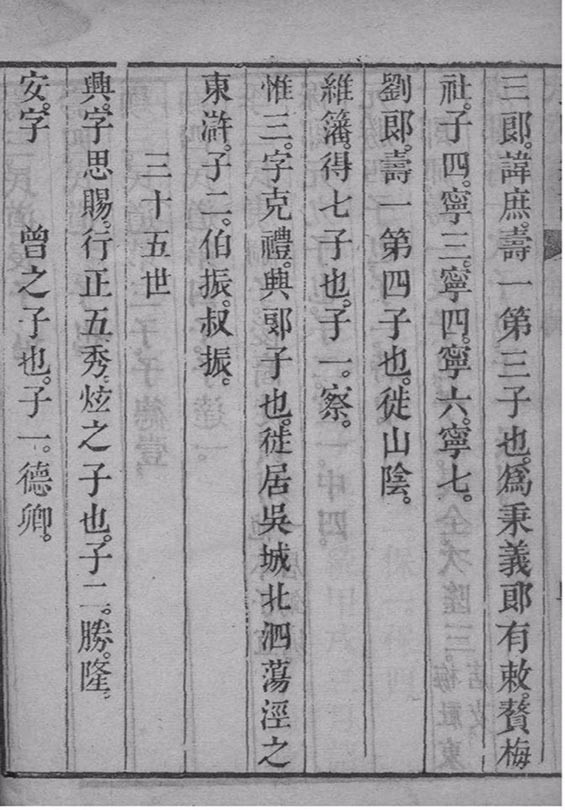 三郎。諱庶。壽一第三子也。爲秉義郎有敕。贅梅
社。子四。寧三。寧四。寧六。寧七。
劉郎。壽一第四子也。徙山陰。
維籓。得七子也。子一。察。
惟三。字克禮。興郭子也。徙居吳城北泗蕩涇之
東滸。子二。伯振。叔振。
三十五世
興。字思賜。行正五秀。炫之子也。子二。勝。隆。
安。字　曾之子也。子一。德卿。